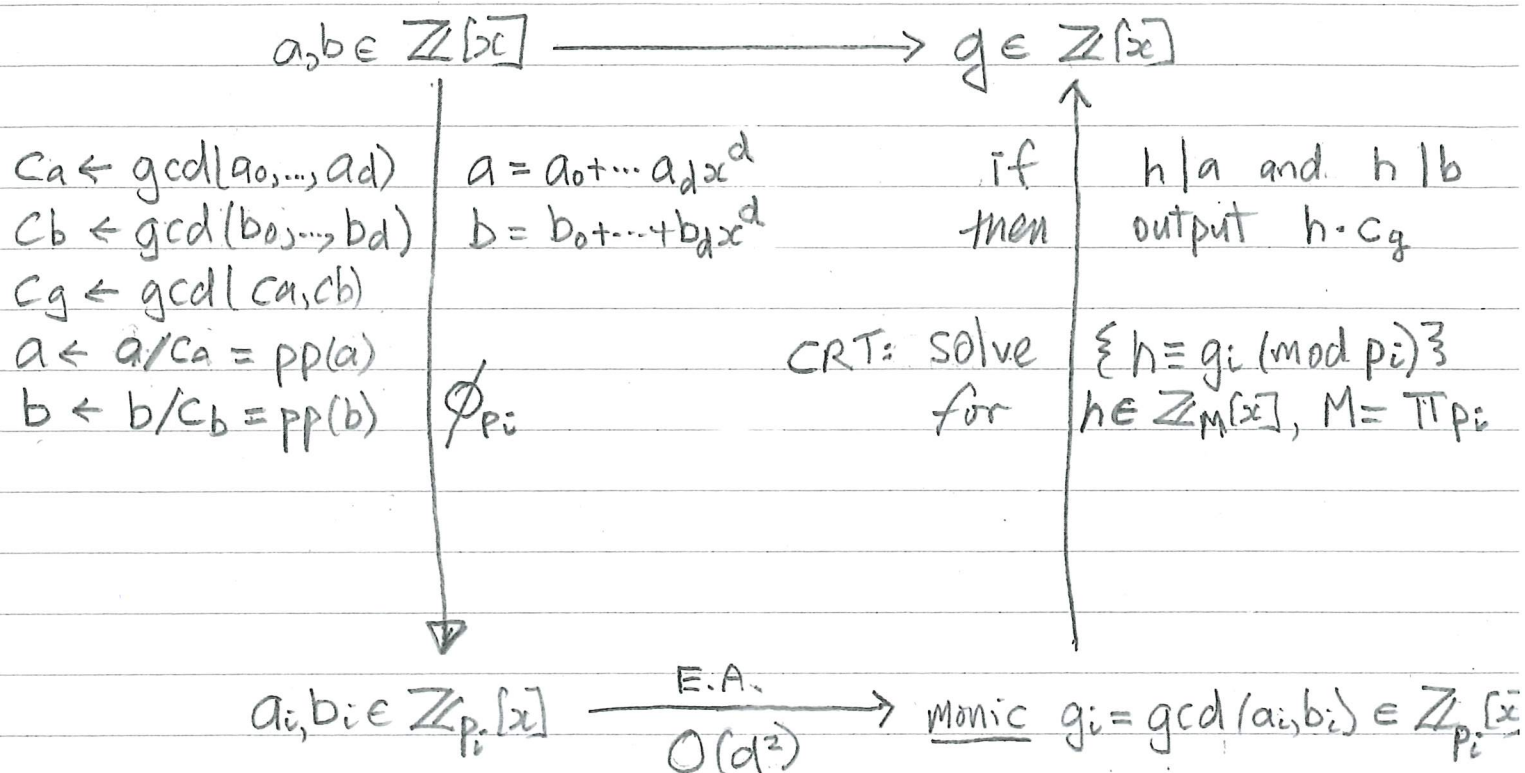 a,b ∈ ℤ[x] ⟶ g ∈ ℤ[x]
Ca ← gcd(a₀,..., a_d)
Cb ← gcd(b₀,..., b_d)
Cg ← gcd(Ca,Cb)
a ← a/Ca = pp(a)
b ← b/Cb = pp(b)
a = a₀+⋯ a_d x^d
b = b₀+⋯+b_d x^d
ϕ_pᵢ
if h|a and h|b
then output h·Cg
CRT: solve {h ≡ gᵢ (mod pᵢ)}
for h ∈ ℤ_M[x], M = Πpᵢ
aᵢ,bᵢ ∈ ℤ_pᵢ[x]
E.A.
O(d²)
monic gᵢ = gcd(aᵢ,bᵢ) ∈ ℤ_pᵢ[x